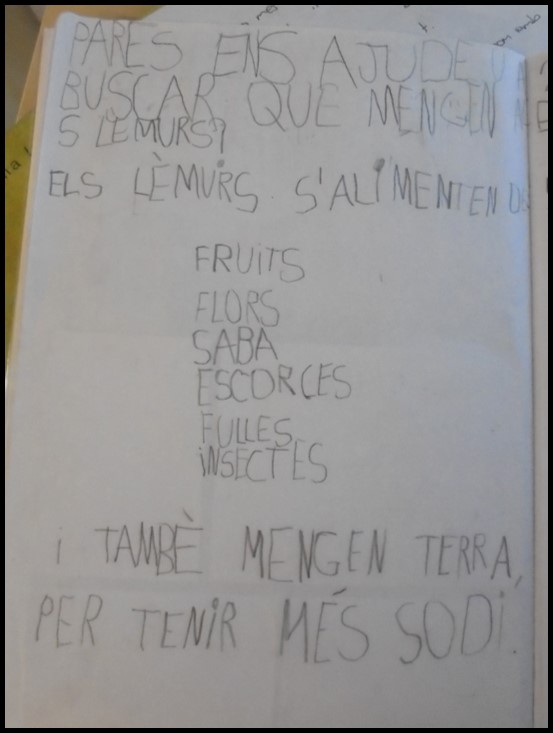 PARES ENS AJUDEU A
BUSCAR QUE MENGEN
S LEMURS?
ELS LÈMURS S'ALIMENTEN D
FRUITS
FLORS
SABA
ESCORCES
FULLES
INSECTES
I TAMBÈ MENGEN TERRA,
PER TENIR MÉS SODI.